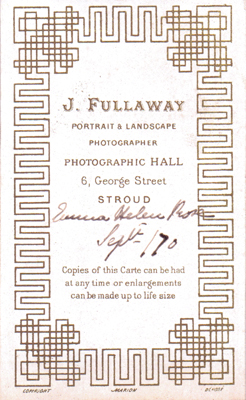 J. FULLAWAY
PORTRAIT & LANDSCAPE
PHOTOGRAPHER
PHOTOGRAPHIC HALL
6, George Street
STROUD
Emma Helen Rose
Sept /70
Copies of this Carte can be had
at any time or enlargements
can be made up to life size
COPYRIGHT MARION